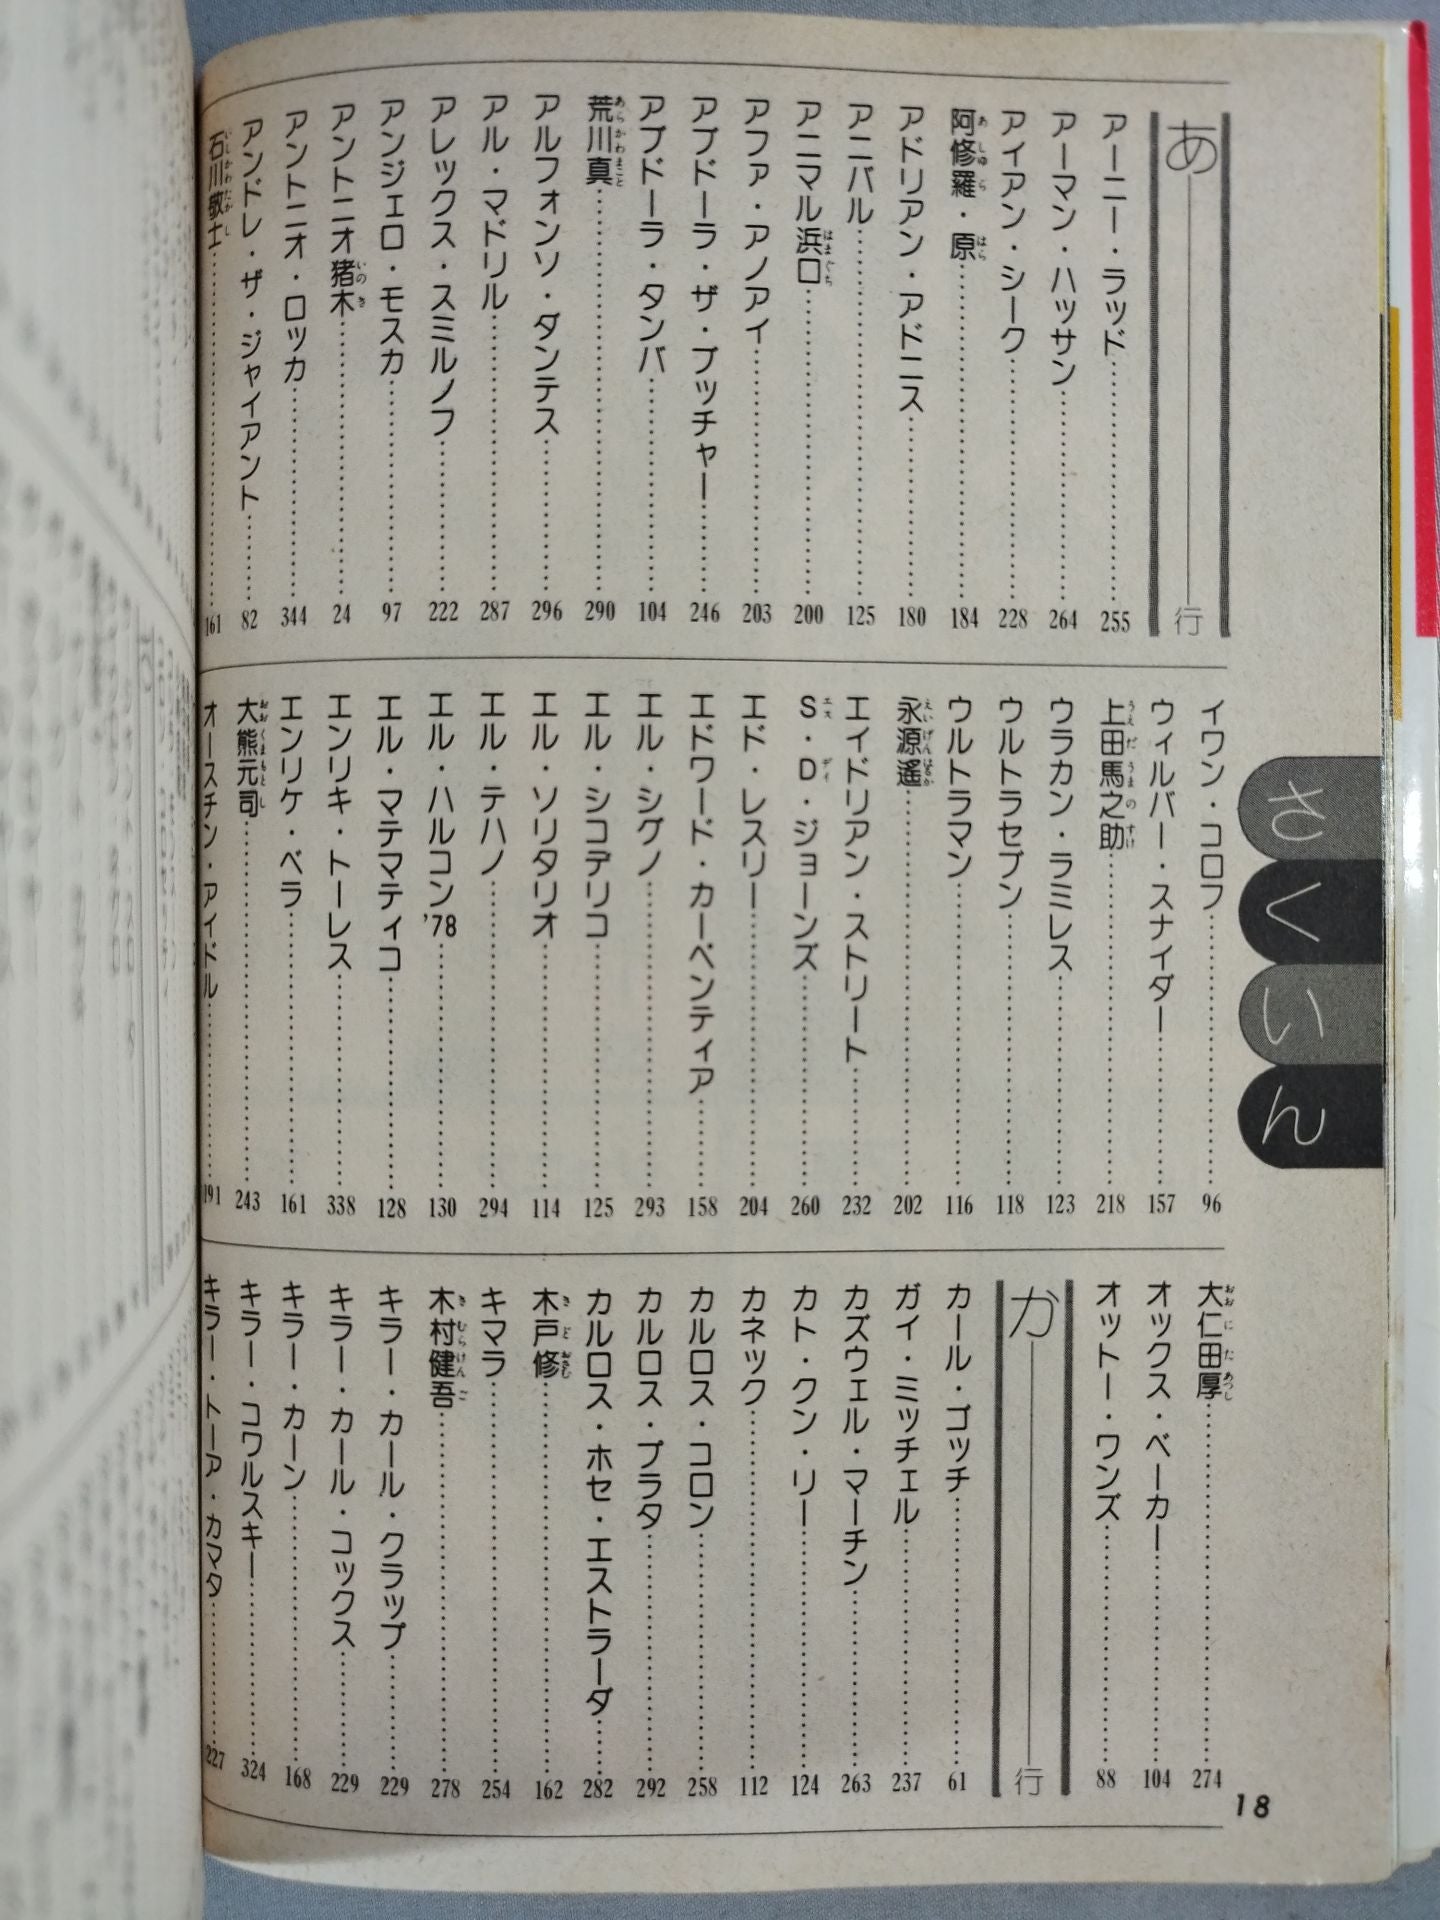 さくいん
あ行
アーニー・ラッド……255
アーマン・ハッサン……264
アイアン・シーク……228
阿修羅・原……184
アドリアン・アドニス……180
アニバル……125
アニマル浜口……200
アファ・アノアイ……203
アブドーラ・ザ・ブッチャー……246
アブドーラ・タンバ……104
荒川真……290
アルフォンソ・ダンテス……296
アル・マドリル……287
アレックス・スミルノフ……222
アンジェロ・モスカ……97
アントニオ猪木……24
アントニオ・ロッカ……344
アンドレ・ザ・ジャイアント……82
石川敬士……161
イワン・コロフ……96
ウィルバー・スナイダー……157
上田馬之助……218
ウラカン・ラミレス……123
ウルトラセブン……118
ウルトラマン……116
永源遙……202
エイドリアン・ストリート……232
S・D・ジョーンズ……260
エド・レスリー……204
エドワード・カーペンティア……158
エル・シグノ……293
エル・シコデリコ……125
エル・ソリタリオ……114
エル・テハノ……294
エル・ハルコン'78……130
エル・マテマティコ……128
エンリキ・トーレス……338
エンリケ・ベラ……161
大熊元司……243
オースチン・アイドル……191
大仁田厚……274
オックス・ベーカー……104
オットー・ワンズ……88
か行
カール・ゴッチ……61
ガイ・ミッチェル……237
カズウェル・マーチン……263
カト・クン・リー……124
カネック……112
カルロス・コロン……258
カルロス・プラタ……292
カルロス・ホセ・エストラーダ……282
木戸修……162
キマラ……254
木村健吾……278
キラー・カール・クラップ……229
キラー・カール・コックス……229
キラー・カーン……168
キラー・コワルスキー……324
キラー・トーア・カマタ……227
18